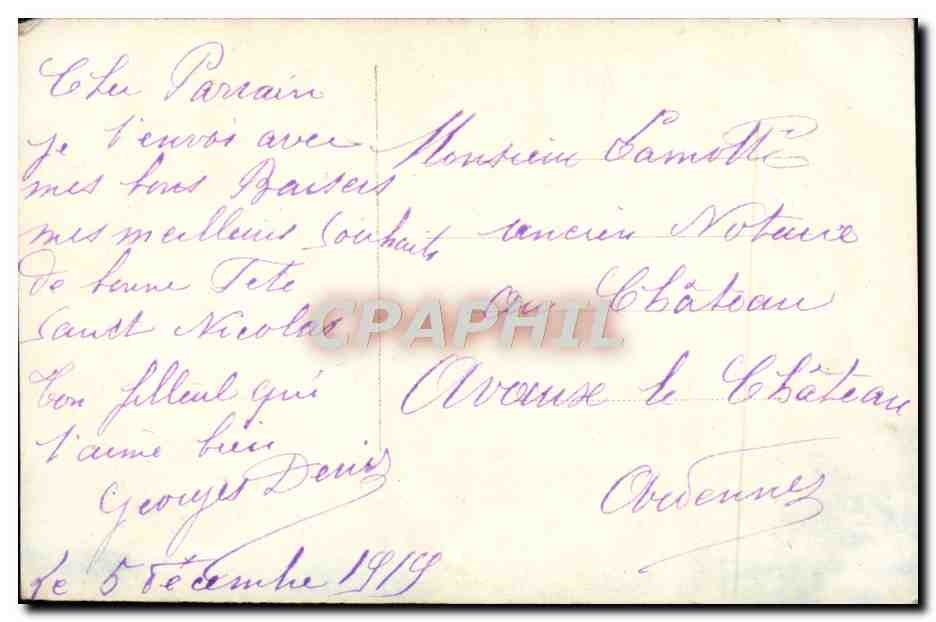 Cher Parrain
je t'envoi avec
mes bons Baisers
mes meilleurs souhaits
de bonne Fete
Sanct Nicolas
Ton filleul qui
t'aime bien
Georges Denis
le 5 décembre 1919
Monsieur Lamotte
ancien Notaire
au Château
Avaux le Château
Ardennes
CPAPHIL